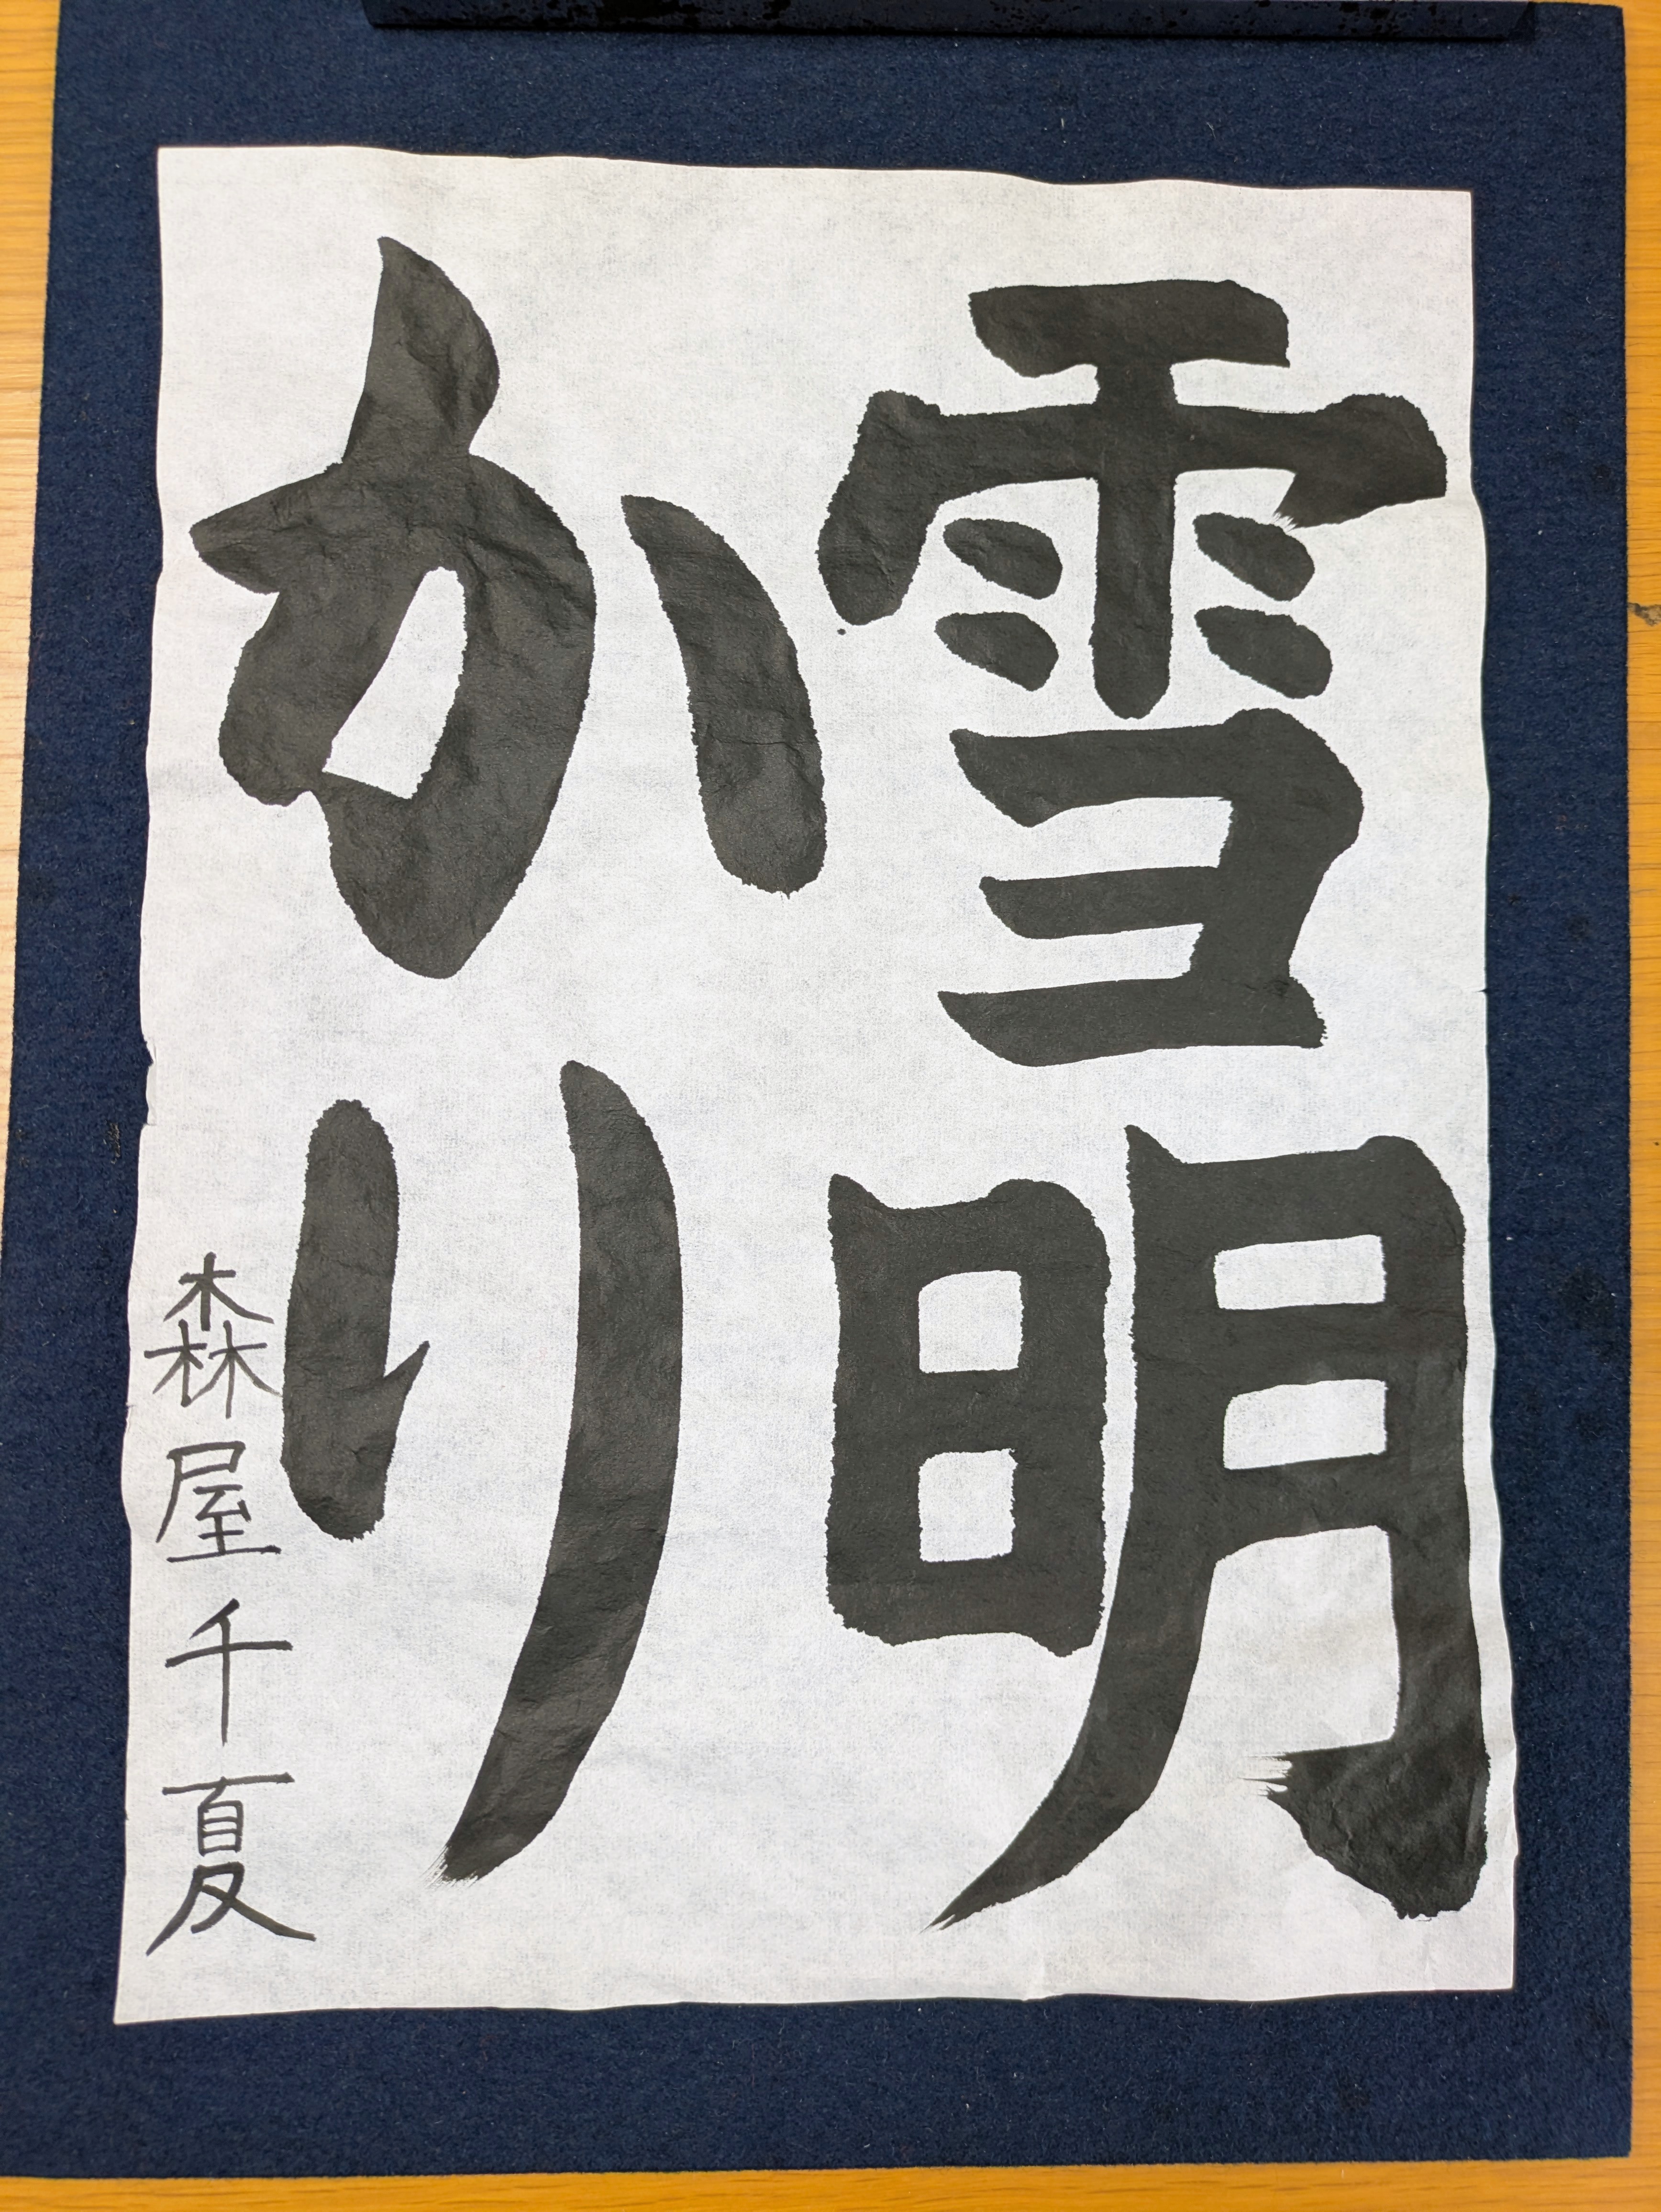 雪明
かり
森屋千夏